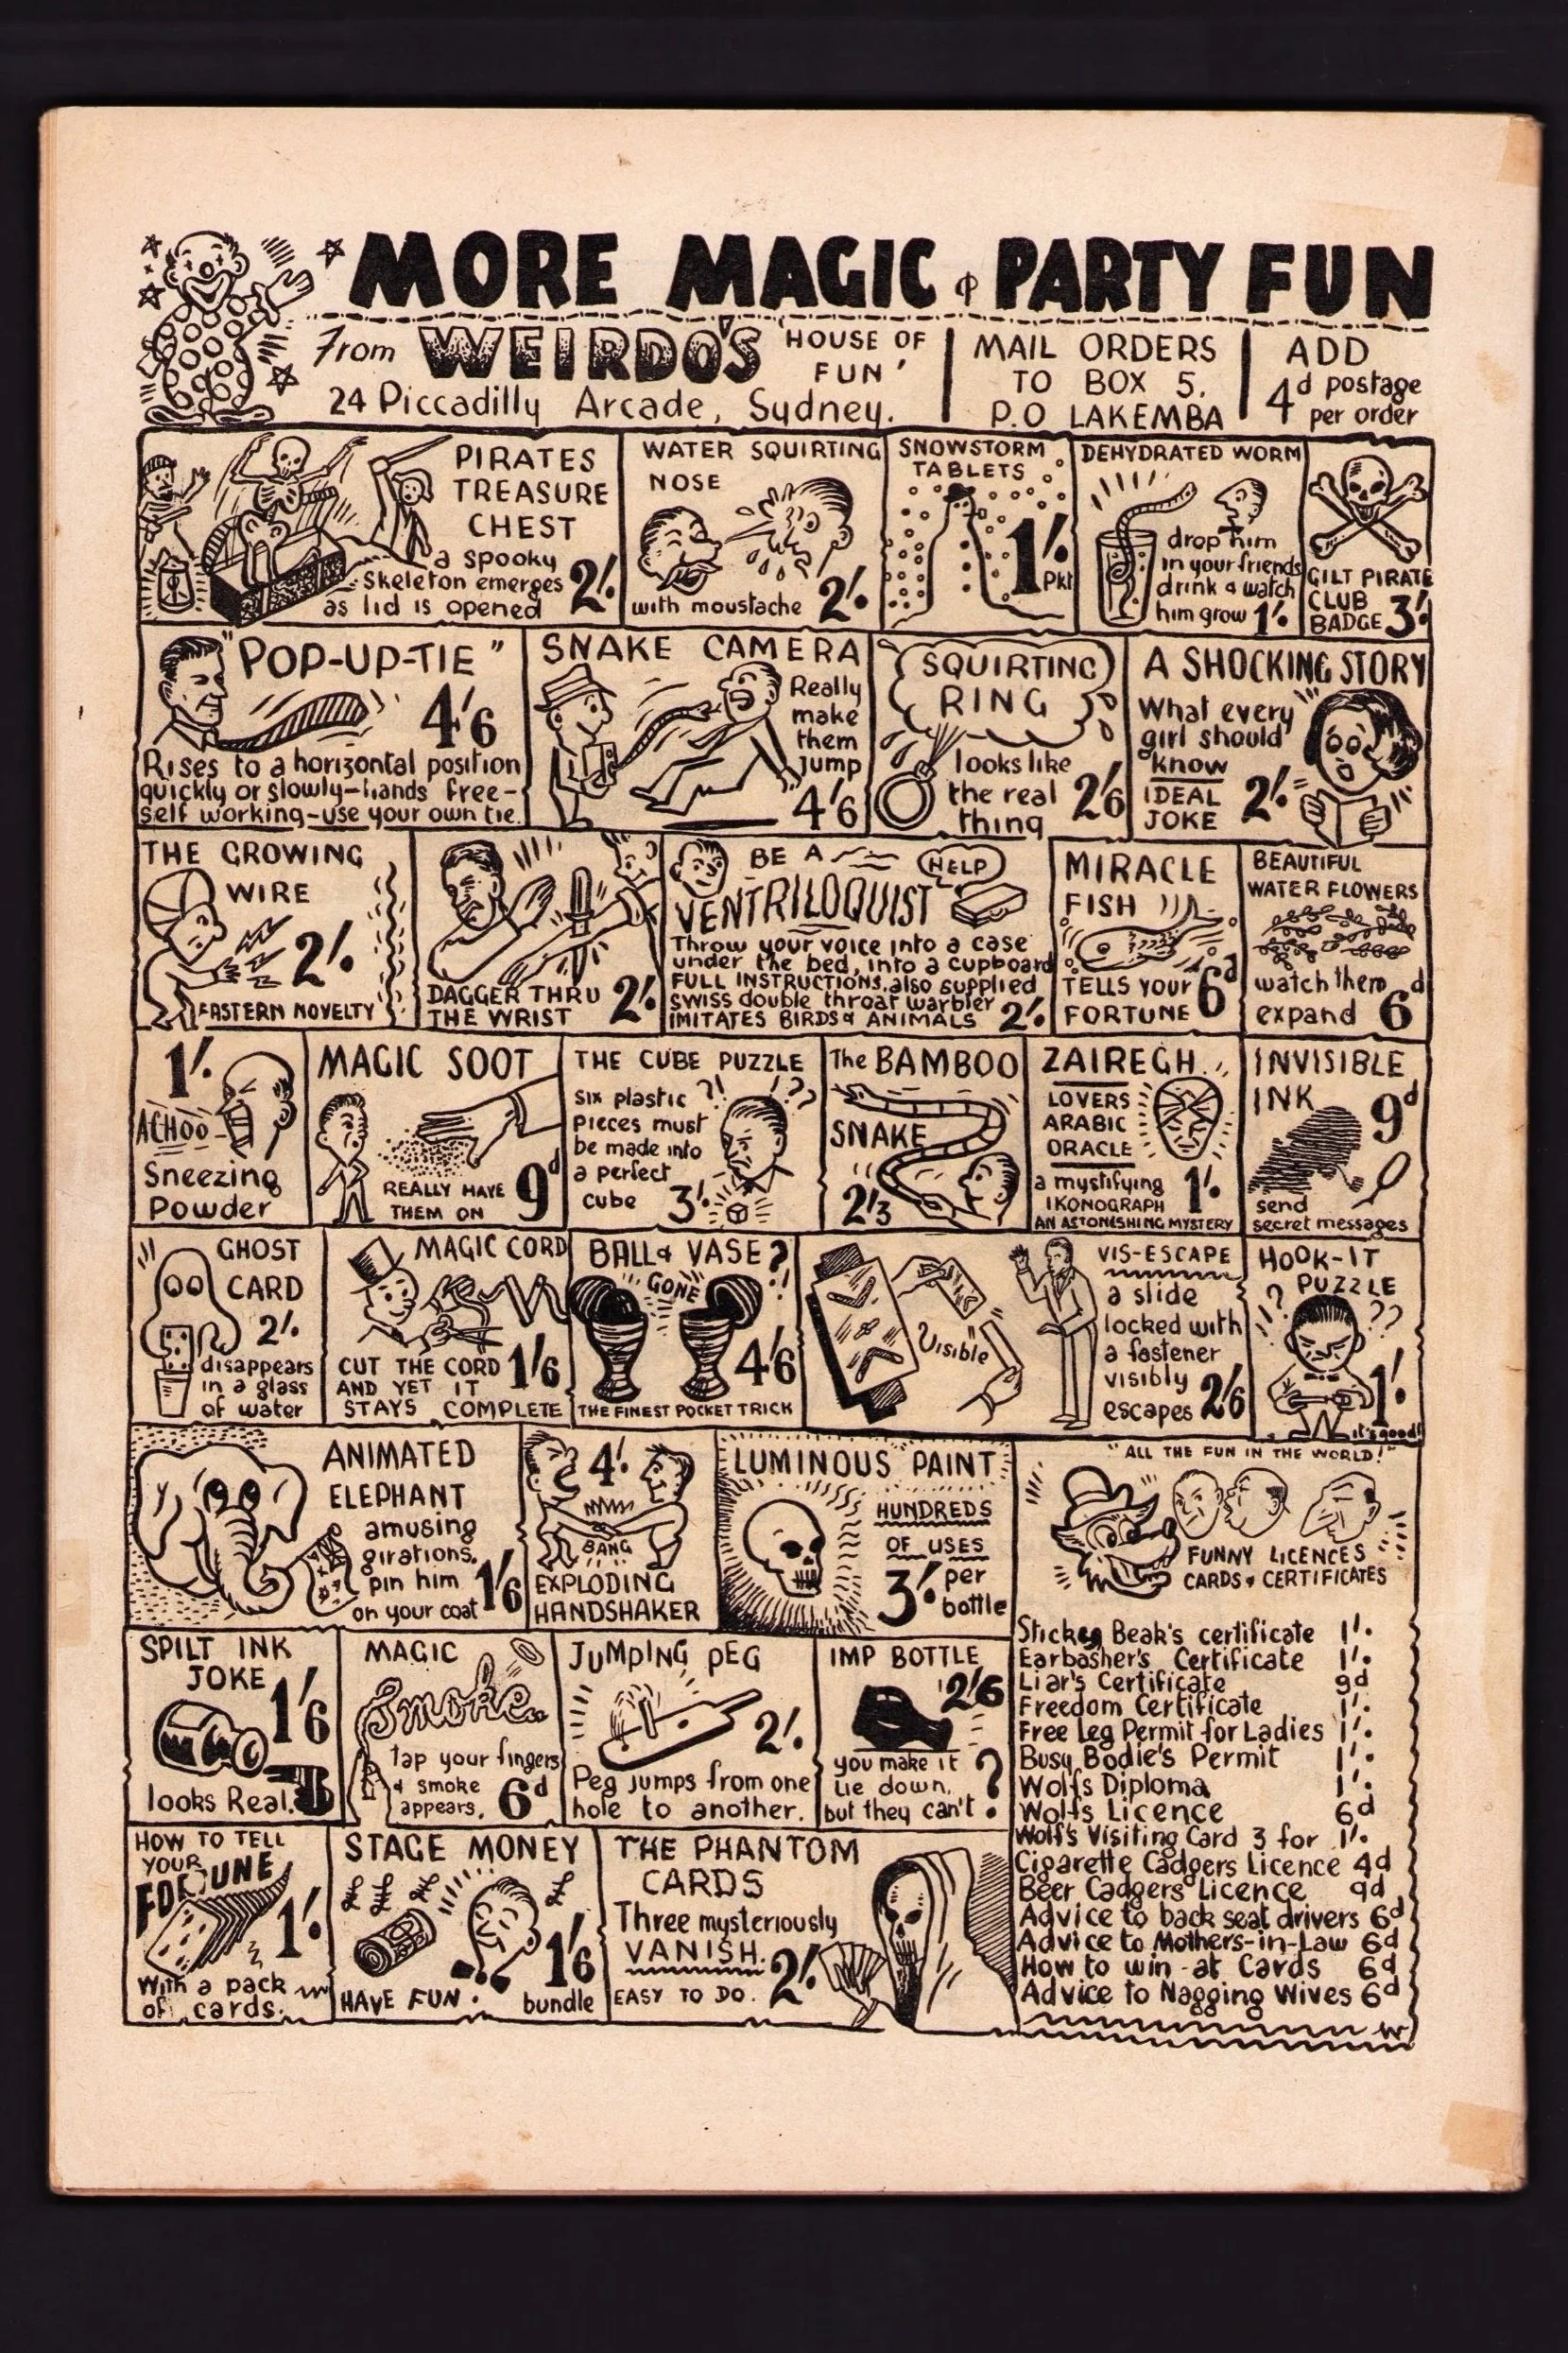 MORE MAGIC & PARTY FUN
From WEIRDO'S 'HOUSE OF FUN'
24 Piccadilly Arcade, Sydney.
MAIL ORDERS
TO BOX 5.
P.O LAKEMBA
ADD
4d postage
per order
PIRATES
TREASURE
CHEST
a spooky
skeleton emerges
as lid is opened
2/.
WATER SQUIRTING
NOSE
with moustache 2/.
SNOWSTORM
TABLETS
1/.
Pkt
DEHYDRATED WORM
drop him
in your friends
drink & watch
him grow 1/.
GILT PIRATE
CLUB
BADGE 3/.
"POP-UP-TIE"
4/6
Rises to a horizontal position
quickly or slowly-hands free-
self working-use your own tie.
SNAKE CAMERA
Really
make
them
jump
4/6
SQUIRTING
RING
looks like
the real
thing
2/6
A SHOCKING STORY
What every
girl should
know
IDEAL
JOKE
2/.
THE GROWING
WIRE
2/.
EASTERN NOVELTY
DAGGER THRU
THE WRIST
2/.
BE A
HELP
VENTRILOQUIST
Throw your voice into a case
under the bed, into a cupboard
FULL INSTRUCTIONS, also supplied
swiss double throat warbler
IMITATES BIRDS & ANIMALS 2/.
MIRACLE
FISH
TELLS YOUR
FORTUNE
6d
BEAUTIFUL
WATER FLOWERS
watch them
expand 6d
1/.
ACHOO
Sneezing
Powder
MAGIC SOOT
REALLY HAVE
THEM ON
9d
THE CUBE PUZZLE
six plastic
pieces must
be made into
a perfect
cube 3/.
?!
!??
The BAMBOO
SNAKE
2/3
ZAIREGH
LOVERS
ARABIC
ORACLE
a mystifying
IKONOGRAPH
1/.
AN ASTONISHING MYSTERY
INVISIBLE
INK 9d
send
secret messages
GHOST
CARD
2/.
disappears
in a glass
of water
MAGIC CORD
CUT THE CORD
AND YET IT
STAYS COMPLETE
1/6
BALL & VASE?
GONE
4/6
THE FINEST POCKET TRICK
Visible
VIS-ESCAPE
a slide
locked with
a fastener
visibly
escapes 2/6
HOOK-IT
PUZZLE
?
??
1/.
it's good!
ANIMATED
ELEPHANT
amusing
girations.
pin him
on your coat
1/6
4/.
BANG
EXPLODING
HANDSHAKER
LUMINOUS PAINT
HUNDREDS
OF USES
3/. per
bottle
"ALL THE FUN IN THE WORLD!"
FUNNY LICENCES
CARDS & CERTIFICATES
Stickey Beak's certificate 1/.
Earbasher's Certificate 1/.
Liar's Certificate 9d
Freedom Certificate 1/.
Free Leg Permit for Ladies 1/.
Busy Bodie's Permit 1/.
Wolfs Diploma 1/.
Wolfs Licence 6d
Wolf's Visiting Card 3 for 1/.
Cigarette Cadgers Licence 4d
Beer Cadgers Licence 9d
Advice to back seat drivers 6d
Advice to Mothers-in-Law 6d
How to win at Cards 6d
Advice to Nagging Wives 6d
SPILT INK
JOKE
1/6
looks Real.
MAGIC
Smoke
tap your fingers
& smoke
appears. 6d
JUMPING PEG
2/.
Peg jumps from one
hole to another.
IMP BOTTLE
2/6
you make it
lie down.
but they can't ?
HOW TO TELL
YOUR
FORTUNE
1/.
With a pack
of cards.
STAGE MONEY
£ ££ £ £
1/6
HAVE FUN. bundle
THE PHANTOM
CARDS
Three mysteriously
VANISH.
2/.
EASY TO DO.